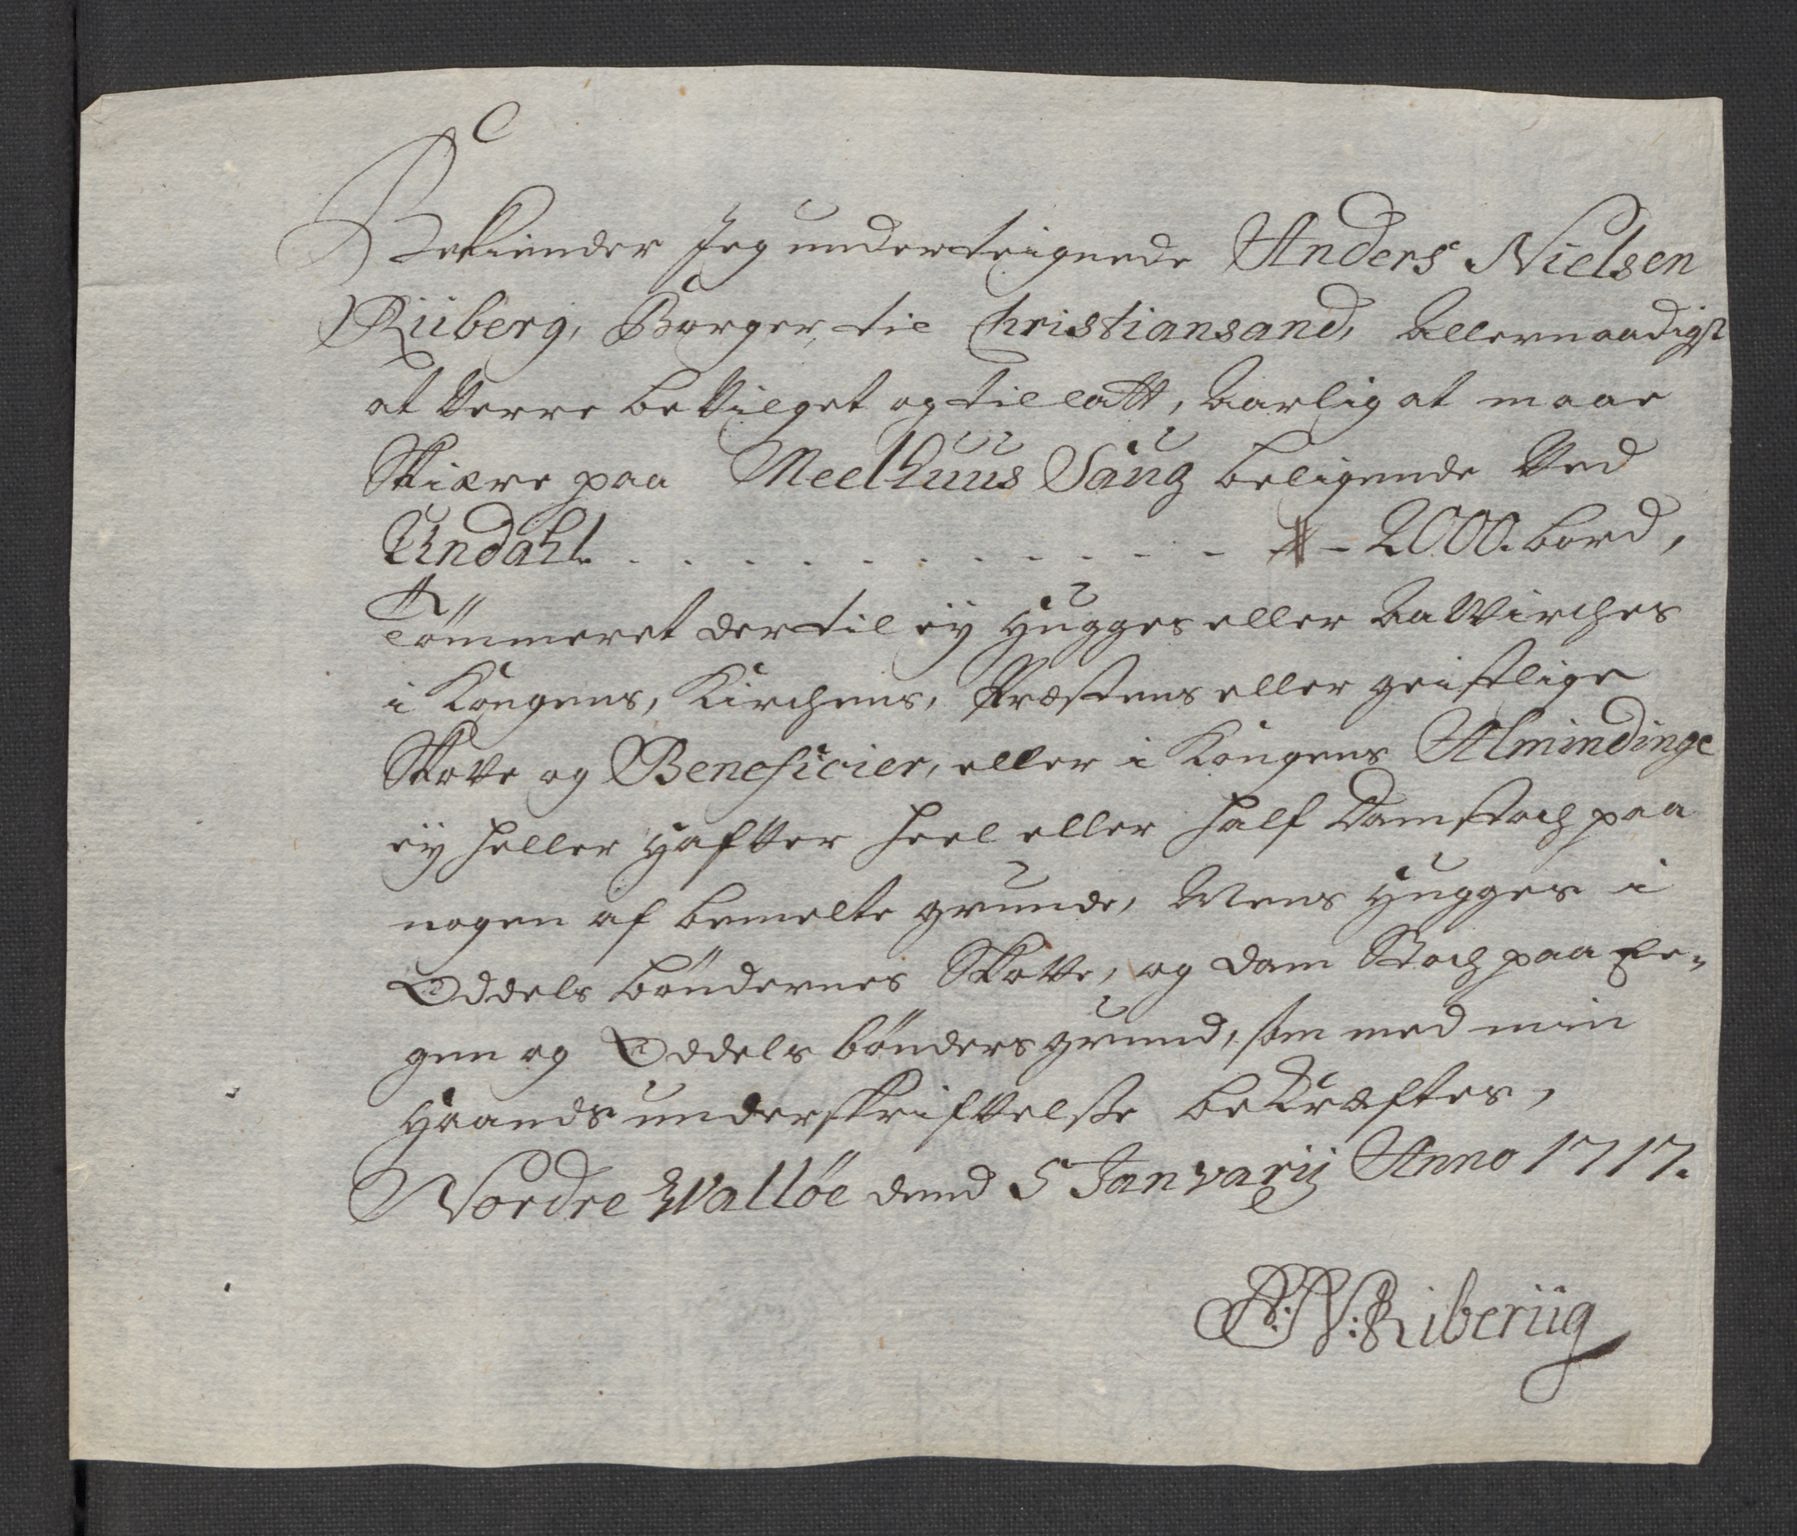 Bekiender Jeg underteignede Anders Nielsen
Riiberg, Borger til Christiansand, Allernaadigst
at Verre beVilget og tilladtt, Aarlig at maae
Skiære paa Meelhuus Saug beligende Ved
Undahl. . . . . . . . . . . . - 2000. bord,
Tömmeret dertil eÿ Hugges eller AaVirches
i Kongens, Kirchens, Præstens eller geistlige
Skove og Beneficier, eller i Kongens Almindinge
eÿ heller Hafver heel eller half Damstoch paa
nogen af bemelte grunde, Mens Hugges i
Oddels böndernes Skove, og Dam Stoch paa Ee-
gen og Oddels bönders grund, som med min
Haands underskriftvelsse bekræftes,
Nordre Walløe dend 5 Janvarij Anno 1717.
A: N: Riberiig